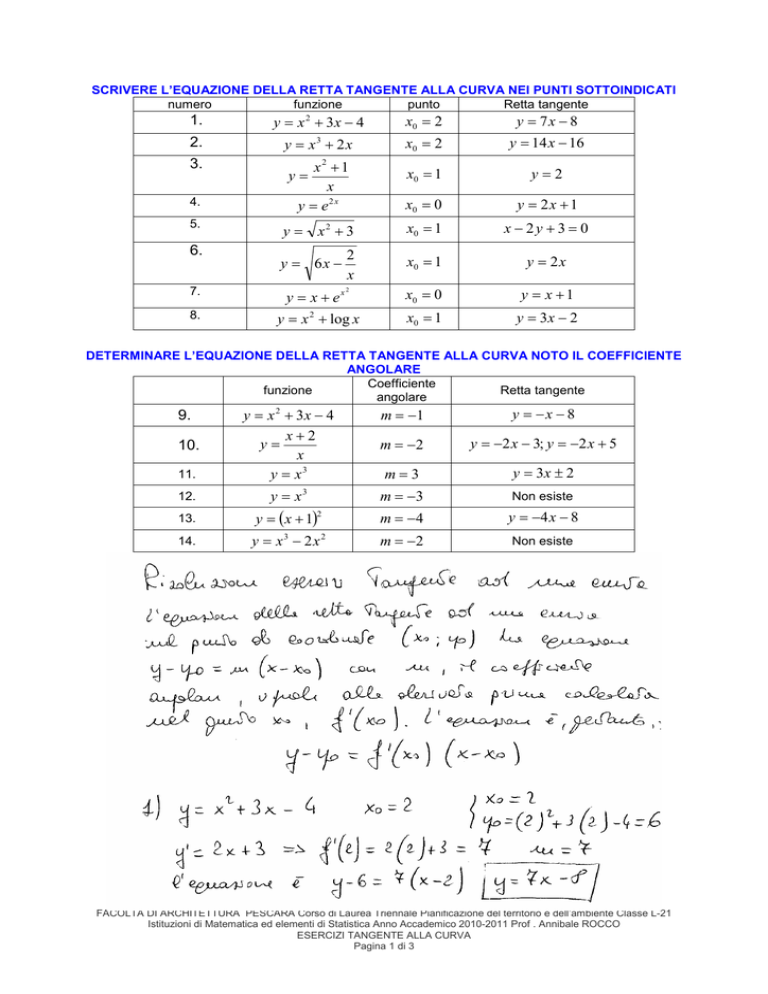 SCRIVERE L'EQUAZIONE DELLA RETTA TANGENTE ALLA CURVA NEI PUNTI SOTTOINDICATI
numero funzione punto Retta tangente
1. y = x² + 3x − 4 x₀ = 2 y = 7x − 8
2. y = x³ + 2x x₀ = 2 y = 14x − 16
3. y = (x² + 1)/x x₀ = 1 y = 2
4. y = e^(2x) x₀ = 0 y = 2x + 1
5. y = √(x² + 3) x₀ = 1 x − 2y + 3 = 0
6. y = √(6x − 2/x) x₀ = 1 y = 2x
7. y = x + e^(x²) x₀ = 0 y = x + 1
8. y = x² + log x x₀ = 1 y = 3x − 2
DETERMINARE L'EQUAZIONE DELLA RETTA TANGENTE ALLA CURVA NOTO IL COEFFICIENTE
ANGOLARE
funzione Coefficiente angolare Retta tangente
9. y = x² + 3x − 4 m = −1 y = −x − 8
10. y = (x + 2)/x m = −2 y = −2x − 3; y = −2x + 5
11. y = x³ m = 3 y = 3x ± 2
12. y = x³ m = −3 Non esiste
13. y = (x + 1)² m = −4 y = −4x − 8
14. y = x³ − 2x² m = −2 Non esiste
Risoluzione esercizi Tangente ad una curva
l'equazione della retta Tangente ad una curva
nel punto di coordinate (x₀; y₀) ha equazione
y − y₀ = m (x − x₀) con m, il coefficiente
angolare, uguale alla derivata prima calcolata
nel punto x₀, f'(x₀). l'equazione è, pertanto,:
y − y₀ = f'(x₀) (x − x₀)
1) y = x² + 3x − 4 x₀ = 2 { x₀ = 2
y₀ = (2)² + 3(2) − 4 = 6
y' = 2x + 3 => f'(2) = 2(2) + 3 = 7 m = 7
l'equazione è y − 6 = 7(x − 2) y = 7x − 8
FACOLTA DI ARCHITETTURA PESCARA Corso di Laurea Triennale Pianificazione del territorio e dell'ambiente Classe L-21
Istituzioni di Matematica ed elementi di Statistica Anno Accademico 2010-2011 Prof . Annibale ROCCO
ESERCIZI TANGENTE ALLA CURVA
Pagina 1 di 3